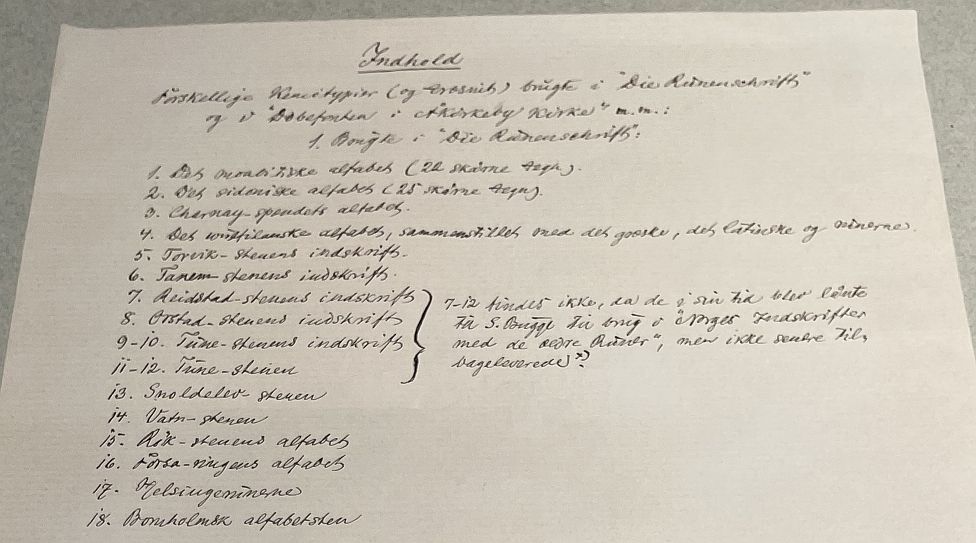 Indhold
Forskellige Kemitypier (og Træsnit) brugte i "Die Runenschrift"
og i "Døbefonten i Åkirkeby Kirke" m.m.:
1. Brugte i "Die Runenschrift":
1. Det moabitiske alfabet (22 skårne tegn).
2. Det sidoniske alfabet (25 skårne tegn).
3. Charnay-spændets alfabet.
4. Det wulfilanske alfabet, sammenstillet med det græske, det latinske og runerne.
5. Torvik-stenens indskrift.
6. Tanem-stenens indskrift.
7. Reidstad-stenens indskrift
8. Orstad-stenens indskrift
9-10. Tune-stenens indskrift
11-12. Tune-stenen
7-12 findes ikke, da de i sin tid blev lånte
til S. Bugge til brug i "Norges Indskrifter
med de ældre Runer", men ikke senere til-
bageleverede*)
13. Snoldelev-stenen
14. Vatn-stenen
15. Rök-stenens alfabet
16. Forsa-ringens alfabet
17. Helsingerunerne
18. Bornholmsk alfabetsten